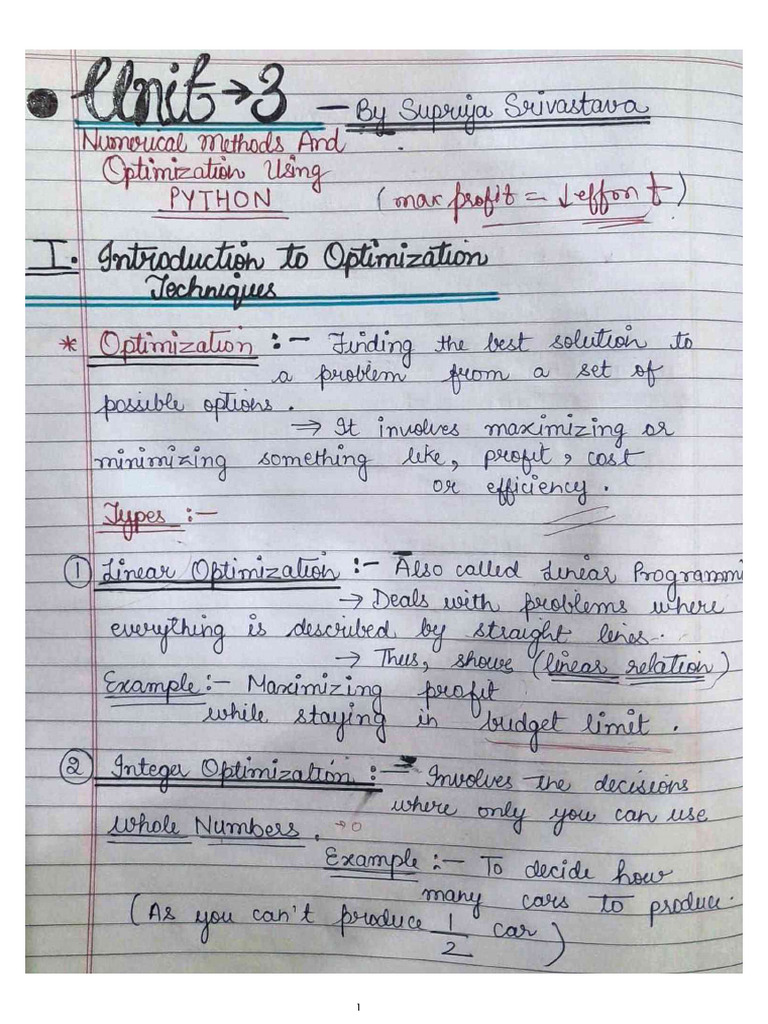 Unit → 3 — By Supruja Srivastava
Numerical Methods And
Optimization Using
PYTHON
(max profit = ↓ effort)
I. Introduction to Optimization
Techniques
* Optimization :- Finding the best solution to
a problem from a set of
possible options.
⇒ It involves maximizing or
minimizing something like, profit, cost
or efficiency.
Types :-
① Linear Optimization :- Also called Linear Programmi
→ Deals with problems where
everything is described by straight lines.
→ Thus, shows (linear relation)
Example :- Maximizing profit
while staying in budget limit.
② Integer Optimization :- Involves the decisions
where only you can use
whole Numbers.
Example :- To decide how
many cars to produce.
(As you can't produce 1/2 car)
1